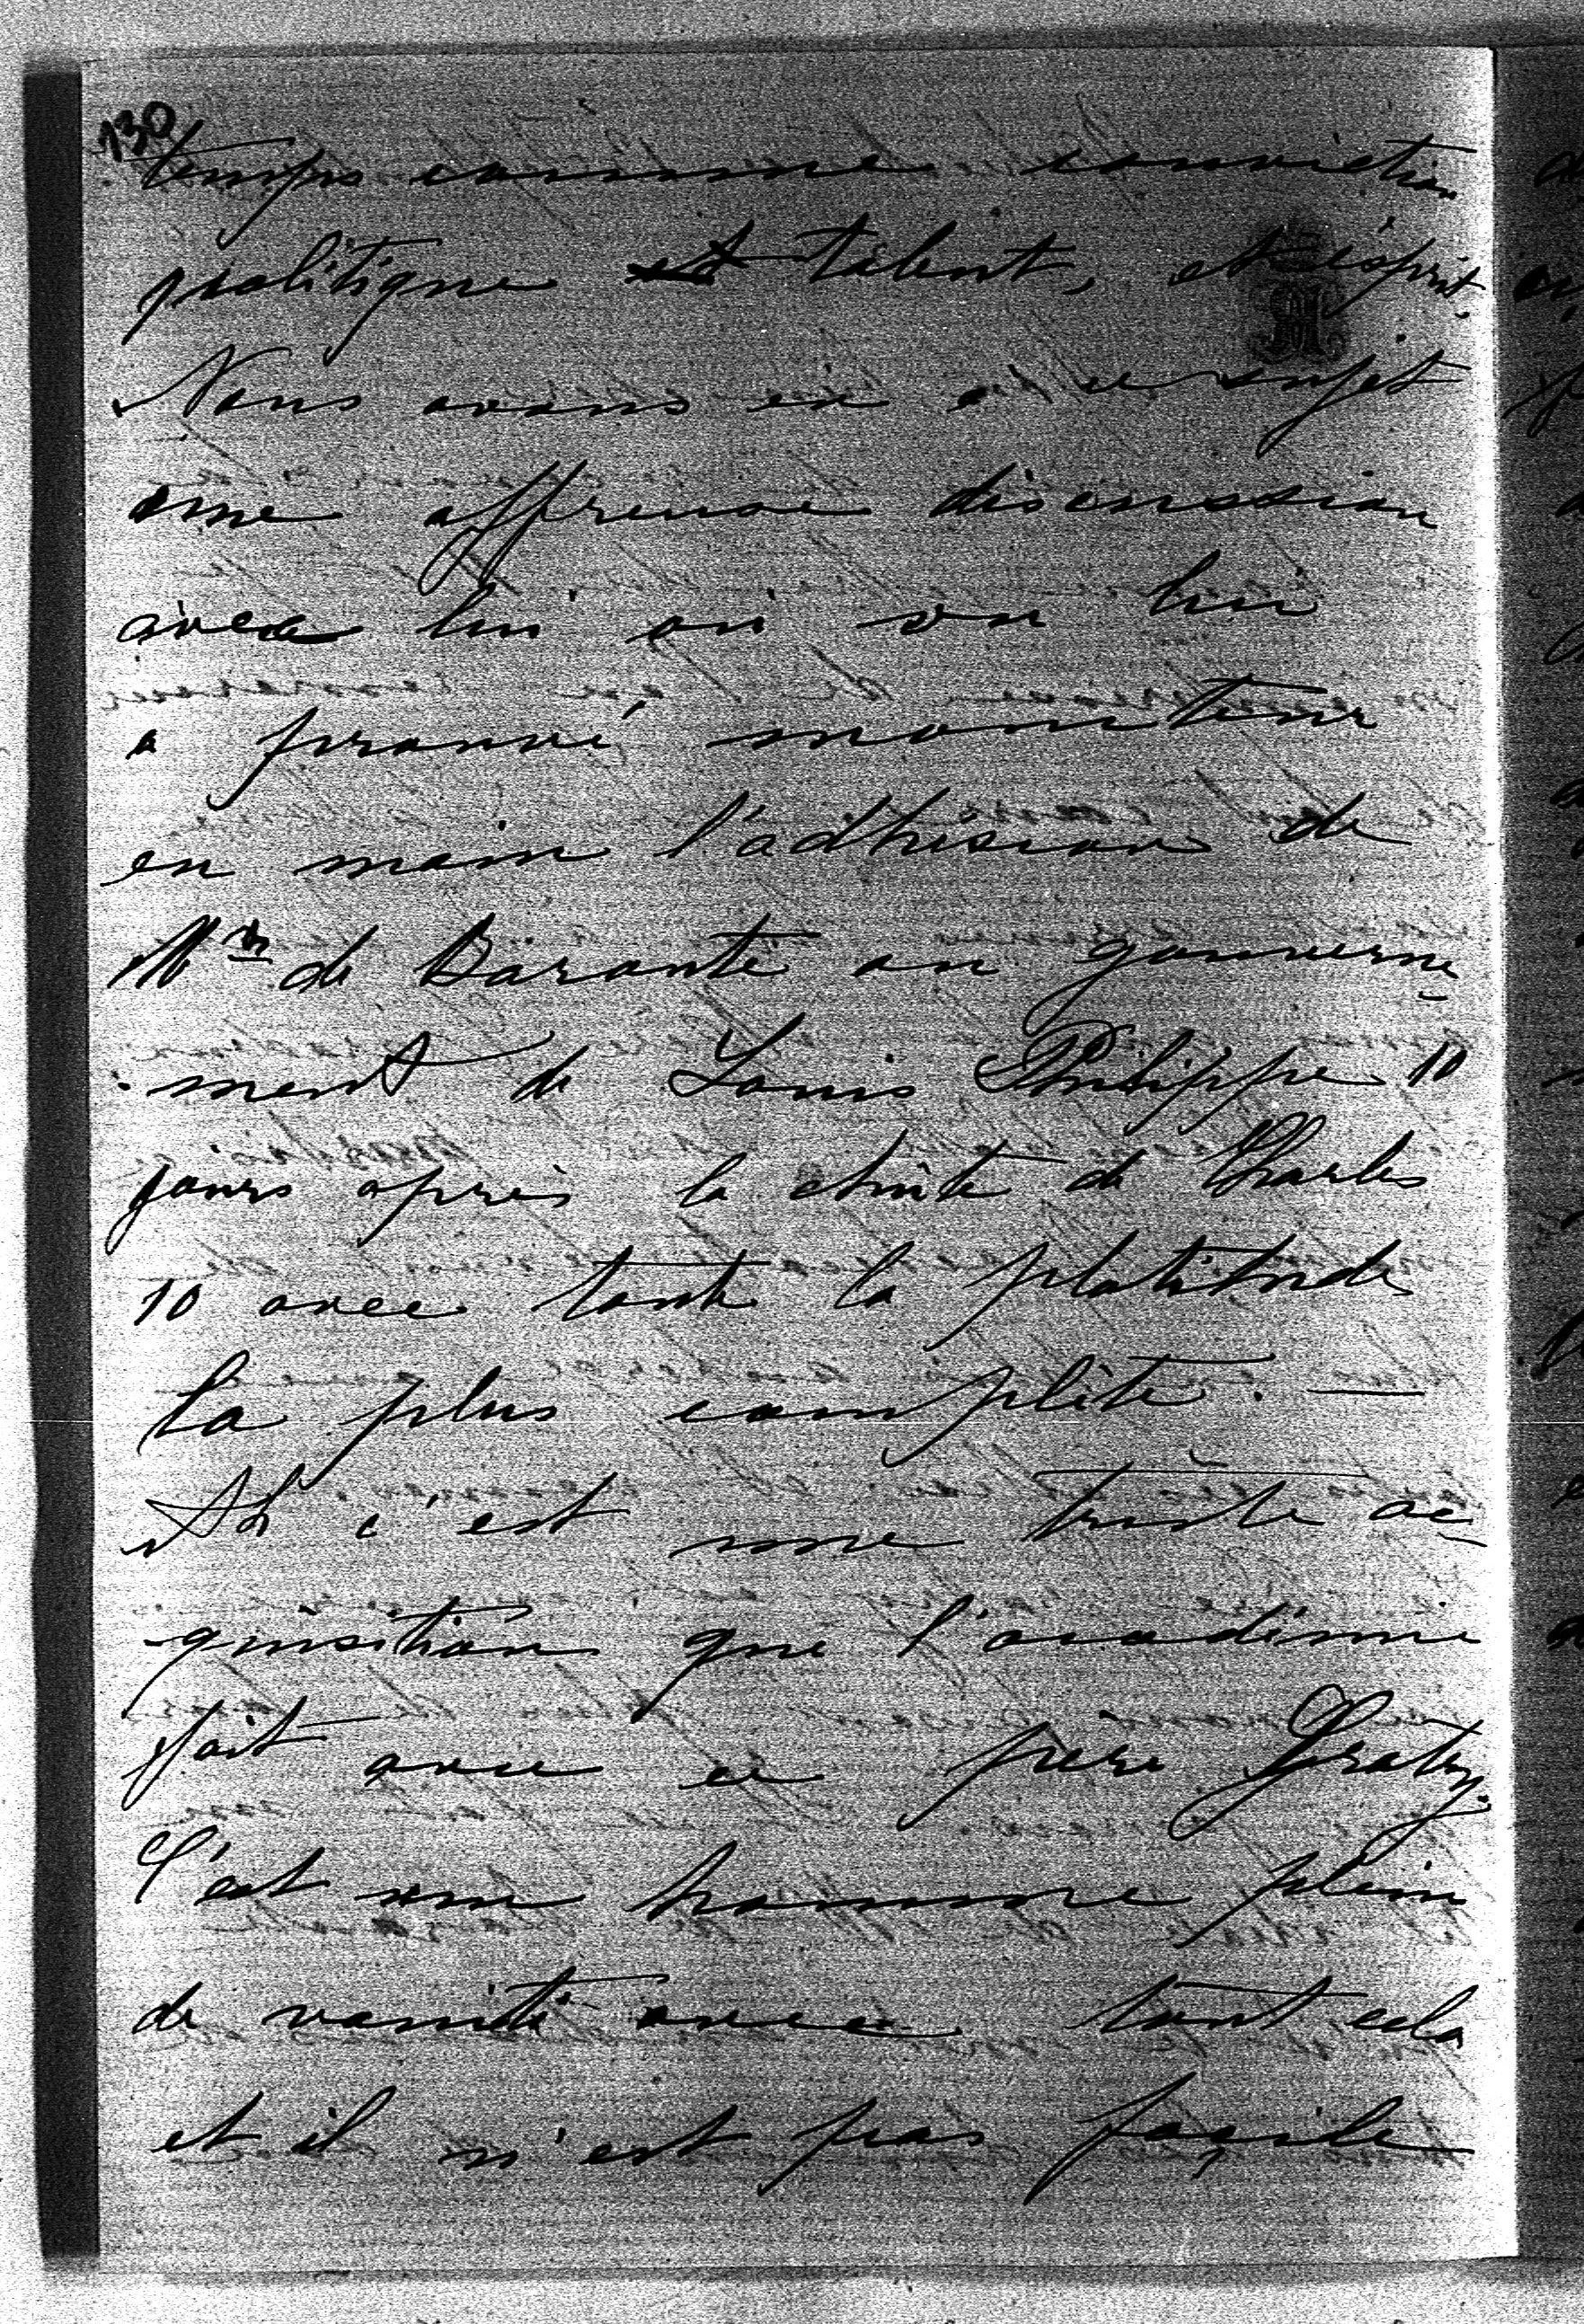 130
temps comme conviction
politique et talent, et ésprit.
Nous avons eu à ce sujet
une affreuse discussion
avec lui où on lui
a prouvé moniteur
en main l'adhésion de
Mr de Barante au gouverne-
-ment de Louis Philippe 10
jours après la chute de Charles
10 avec toute la platitude
la plus complète. —
Ah c'est une triste ac-
-quisition que l'académie
fait avec ce père Gratry.
C'est un homme plein
de vanité avec tout cela
et il n'est pas façile